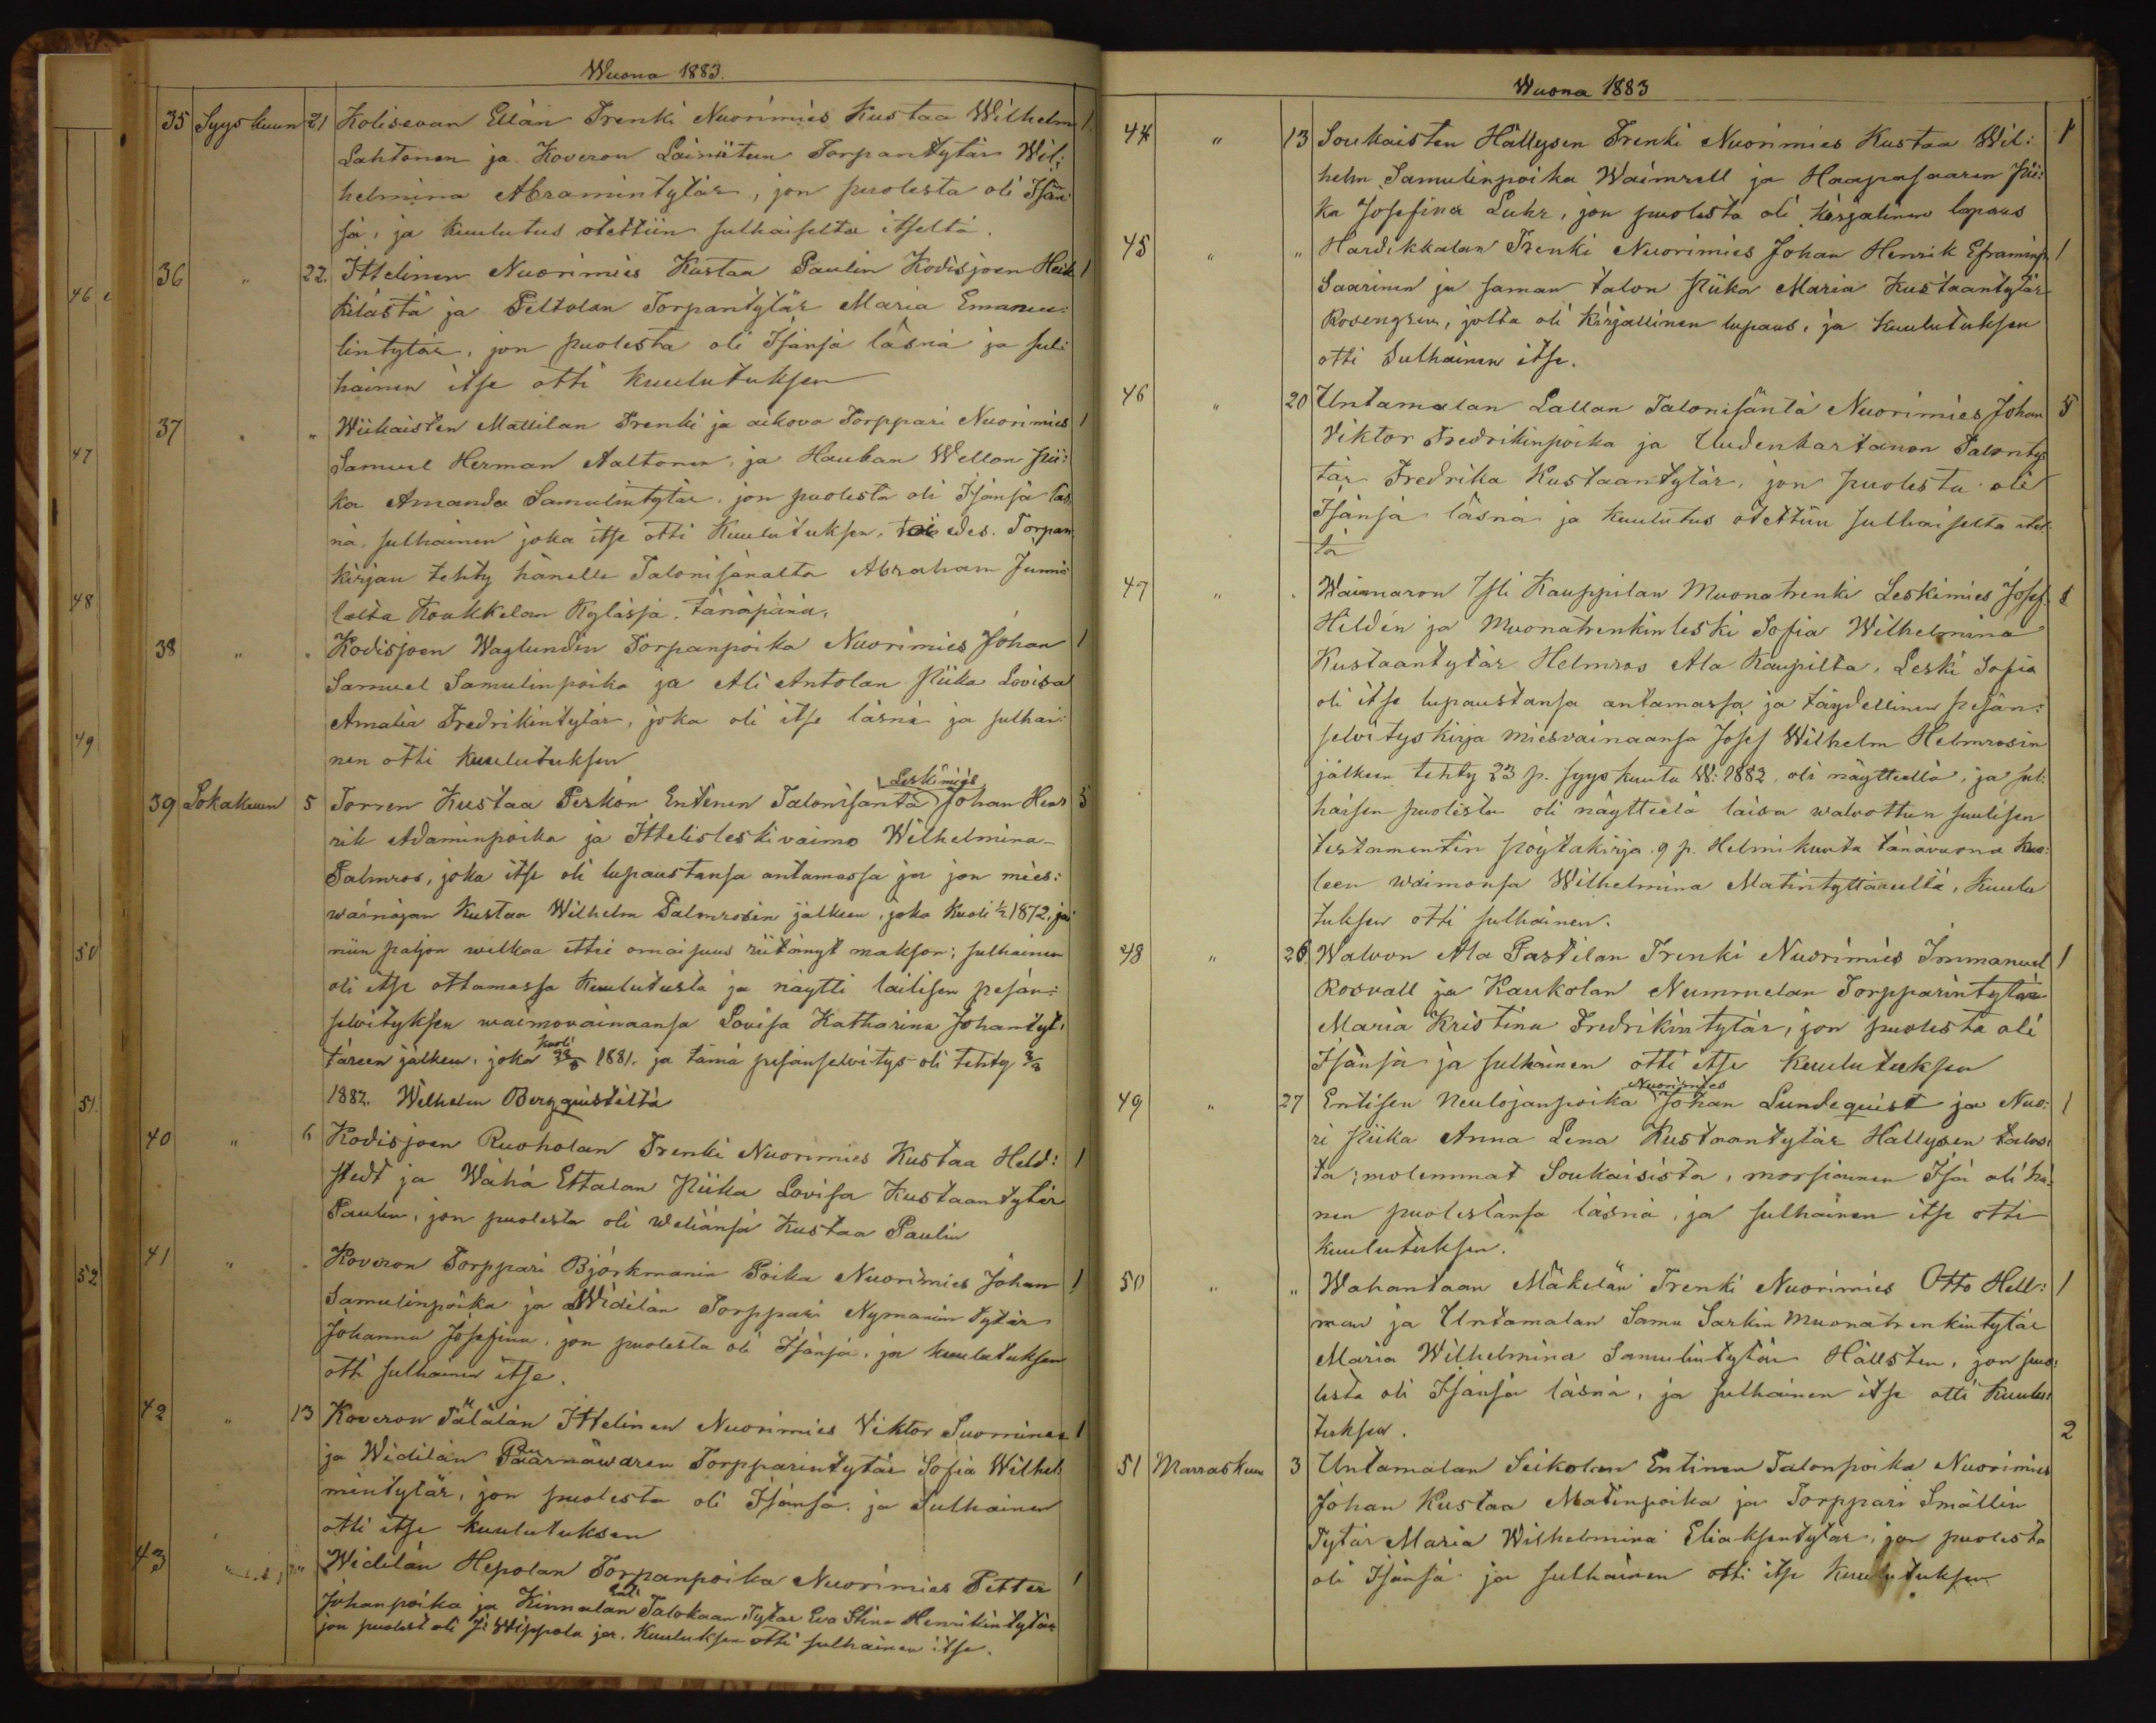 Wuona 1883.
35 Syyskuun 21 Kolisevan Ellän Trenki Nuorimies Kustaa Wilhelm 1
Lahtonen ja Koveron Torpantytär Wil:
helmina Abramintytär, jon puolesta oli Isän:
sä, ja kuulutus otettiin sulhaiselta itseltä.
36 " 22. Ittelinen Nuorimies Kustaa Paulin Kodisjoen Heik 1
kilästä ja Peltolan Torpantytär Maria Emanu:
lintytär, jon puolesta oli Isänsä läsnä ja sul:
hainen itse otti kuulutuksen
37 " " Wiikaisten Mattilan Trenki ja aikova Torppari Nuorimies 1
Samuel Herman Aaltonen, ja Haukan Wellon Pii:
ka Amanda Samulintytär, jon puolesta oli Isänsä läs
nä, sulhainen joka itse otti kuulutuksen, edes. Torpan
kirjan tehty hänelle Talonisänältä Abraham Junni
lalta Koukkelan Kylässä, tänäpänä.
38 " " Kodisjoen Waglundin Torpanpoika Nuorimies Johan 1
Samuel Samulinpoika ja Ali Antolan Piika Lovisa
Amalia Fredrikintytär, joka oli itse läsnä ja sulhai:
nen otti kuulutuksen
Leskimies
39 Lokakuun 5 Torren Kustaa Perkön Entinen Talonisäntä Johan Hen 5
rik Adaminpoika ja Ittelisleskivaimo Wilhelmina
Palmros, joka itse oli lupaustansa antamassa ja jon mies:
wainajan Kustaa Wilhelm Palmrosin jälkeen, joka kuoli 1/2 1872, jäi
niin paljon welkaa ettei omaisuus riitänyt makson; sulhainen
oli itse ottamassa kuulutusta ja näytti laillisen pesän:
selvityksen waimovainaansa Lovisa Katharina Johantyt:
kuoli
täreen jälkeen, joka 1881. ja tämä pesänselvitys oli tehty
1882. Wilhelm Bergquistiltä
40 " 6 Kodisjoen Ruoholan Trenki Nuorimies Kustaa Held: 1
stedt ja Wähä Ettalan Piika Lovisa Kustaantytär
Paulin, jon puolesta oli weljänsä Kustaa Paulin
41 " " Koveron Torppari Björkmanin Poika Nuorimies Johan 1
Samulinpoika ja Widilän Torppari Nymanin tytär
Johanna Josefina, jon puolesta oli Isänsä, ja kuulutuksen
otti sulhainen itse.
42 " 13 Koveron Ittelinen Nuorimies Viktor Suominen 1
ja Widilän Torpparintytär Sofia Wilhel:
mintytär, jon puolesta oli Isänsä, ja Sulhainen
otti itse kuulutuksen
43 " " Widilän Hepolan Torpanpoika Nuorimies Petter 1
Johanpoika ja Kinnalan Talokaan Tytär Eva Stina Henrikintytär
jon puolest oli Wippola ja kuuluksen otti sulhainen itse.
46
47
48
49
50
51.
52
Wuona 1883
44 " 13 Soukaisten Hällysen Trenki Nuorimies Kustaa Wil: 1
helm Samulinpoika Waimrell ja Haapasaaren Pii:
ka Josefina Luhr, jon puolesta oli kirjalinen lopaus
45 " " Hardikkalan Trenki Nuorimies Johan Henrik Eframinp. 1
Saarinen ja saman talon Piika Maria Kustaantytär
Rosengren, jolta oli kirjallinen lupaus, ja kuulutuksen
otti Sulhainen itse.
46 " 20 Untamalan Lallan Talonisäntä Nuorimies Johan 5
Viktor Fredrikinpoika ja Uudenkartanon Talonty:
tär Fredrika Kustaantytär, jon puolesta oli
Isänsä läsnä ja kuulutus otettiin sulhaiselta itsel:
tä
47 " " Wainnaron Isli Kauppilan Muonatrenki Leskimies Josef
Hildén ja Muonatrenkinleski Sofia Wilhelmina
Kustaantytär Helmros Ala Kaupilta, Leski Sofia
oli itse lupaustansa antamassa ja täydellinen pesän:
selvityskirja miesvainaansa Josef Wilhelm Helmrosin
jälkeen tehty 23 p. syyskuuta W: 1882, oli näytteellä, ja sul:
haisen puolesta oli näytteelä laisa walvottun suulisen
testamentin pöytäkirja 9 p. Helmikuuta tänävuona kuo:
leen waimonsa Wilhelmina Matintyttäreeltä, kuulu
tuksen otti sulhainen.
48 " 26 Walvon Ala Pastilan Trenki Nuorimies Immanuel 1
Rosvall ja Kaukolan Nummelan Torpparintytär
Maria Kristina Fredrikintytär, jon puolesta oli
Isänsä ja sulhainen otti itse kuulutuksen
Nuorimies
49 " 27 Entisen Neulojanpoika Johan Lundequist ja Nuo: 1
ri Piika Anna Lena Kustaantytär Hallysen talos:
ta; molemmat Soukaisista, morsiamen Isä oli hä:
nen puolestansa läsnä, ja sulhainen itse otti
kuulutuksen.
50 " " Wahantaan Mäkelän Trenki Nuorimies Otto Hell: 1
man ja Untamalan Samu Sarkin Muonatrenkintytär
Maria Wilhelmina Samulintytär Hällsten, jon puo:
lesta oli Isänsä läsnä, ja sulhainen itse otti kuulu:
tuksen. 2
51 Marraskuu 3 Untamalan Seikolan Entinen Talonpoika Nuorimies
Johan Kustaa Matinpoika ja Torppari Smällin
Tytär Maria Wilhelmina Eliaksentytär, jon puolesta
oli Isänsä ja sulhainen otti itse kuulutuksen